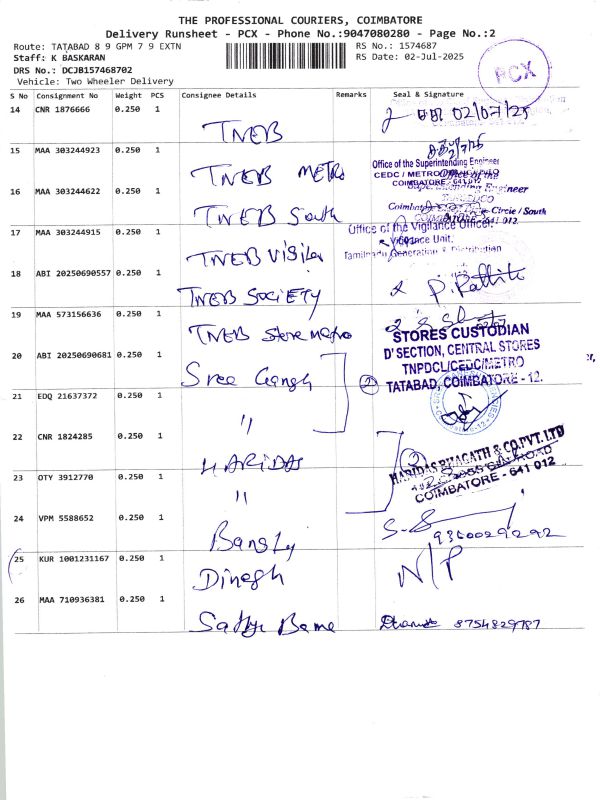 THE PROFESSIONAL COURIERS, COIMBATORE
Delivery Runsheet - PCX - Phone No.:9047080280 - Page No.:2
Route: TATABAD 8 9 GPM 7 9 EXTN
RS No.: 1574687
Staff: K BASKARAN
RS Date: 02-Jul-2025
DRS No.: DCJB157468702
Vehicle: Two Wheeler Delivery
PCX
S No Consignment No Weight PCS Consignee Details Remarks Seal & Signature
14 CNR 1876666 0.250 1 TNEB 02/07/25
15 MAA 303244923 0.250 1 TNEB METRO
Office of the Superintending Engineer
CEDC / METRO
COIMBATORE - 641 012
16 MAA 303244622 0.250 1 TNEB South
Office of the
Superintending Engineer
Circle / South
641 012.
17 MAA 303244915 0.250 1 TNEB Vigila
Office of the Vigilance Officer
Vigilance Unit,
Tamilnadu Generation & Distribution
18 ABI 20250690557 0.250 1 TNEB SOCIETY
19 MAA 573156636 0.250 1 TNEB Store Metro
STORES CUSTODIAN
D' SECTION, CENTRAL STORES
TNPDCL/CEDC/METRO
TATABAD, COIMBATORE - 12.
20 ABI 20250690681 0.250 1 Sree Gangh
2
21 EDQ 21637372 0.250 1 "
22 CNR 1824285 0.250 1 HARIDAS
2
HARIDAS BHAGATH & CO.PVT.LTD
COIMBATORE - 641 012
23 OTY 3912770 0.250 1 "
24 VPM 5588652 0.250 1 Bansly
9360029292
25 KUR 1001231167 0.250 1 Dinesh N/P
26 MAA 710936381 0.250 1 Sathya Bama 8754829787